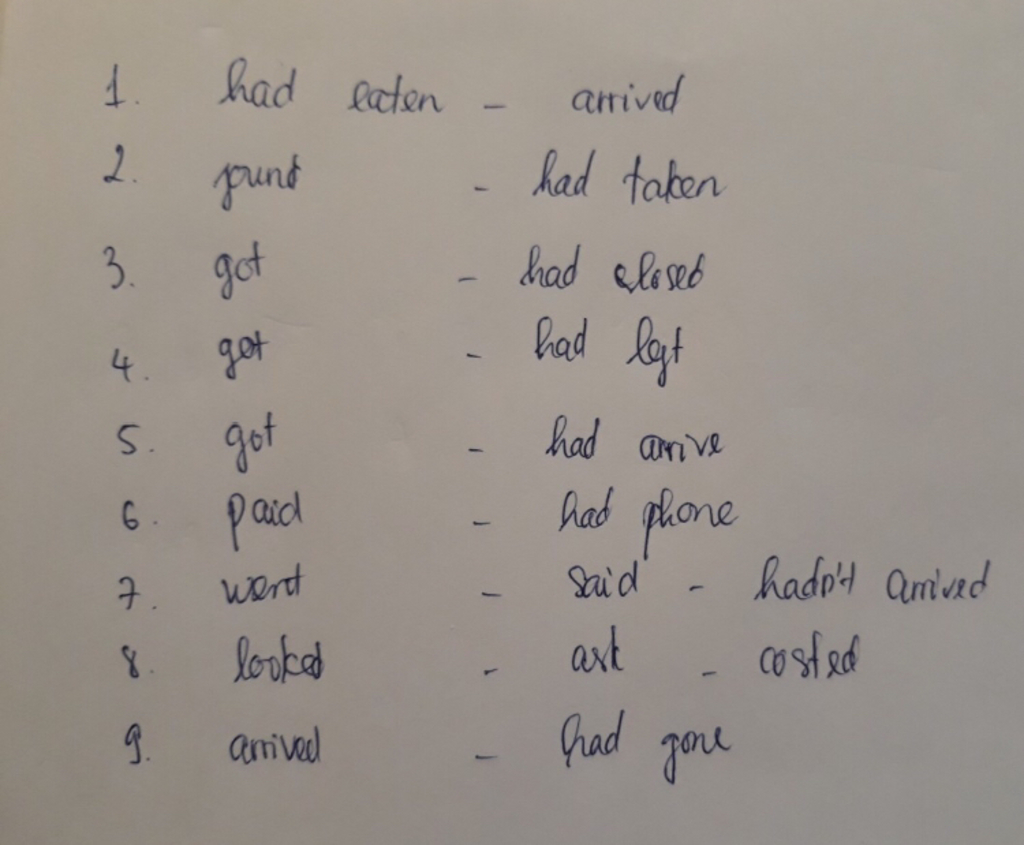 1. had eaten - arrived
2. found - had taken
3. got - had closed
4. got - had left
5. got - had arrive
6. paid - had phone
7. went - said - hadn't arrived
8. looked - ask - costed
9. arrived - had gone